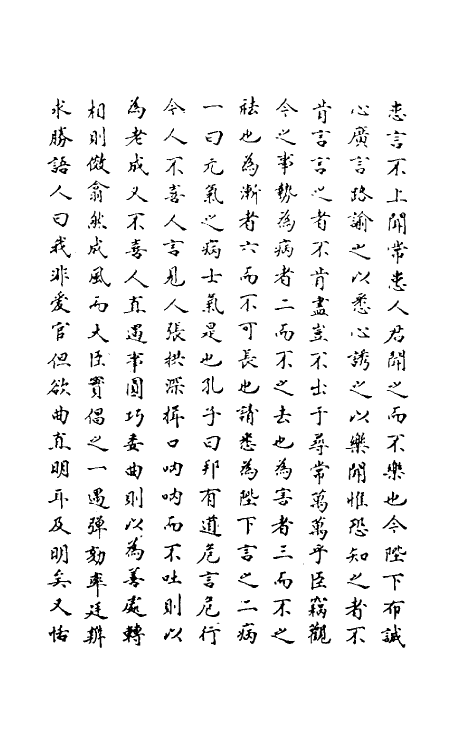 患言不上聞常患人君聞之而不樂也今陛下布誠
心廣言路諭之以悉心誘之以樂聞惟恐知之者不
肯言言之者不肯盡豈不出于尋常萬萬乎臣竊觀
今之事勢為病者二而不之去也為害者三而不之
祛也為漸者六而不可長也請悉為陛下言之二病
一曰元氣之病士氣是也孔子曰邦有道危言危行
今人不喜人言見人張拱深揖口吶吶而不吐則以
為老成又不喜人直遇事圓巧委曲則以為善處轉
相則傚翕然成風而大臣實倡之一遇彈劾率廷辨
求勝語人曰我非愛官但欲曲直明耳及明矣又恬